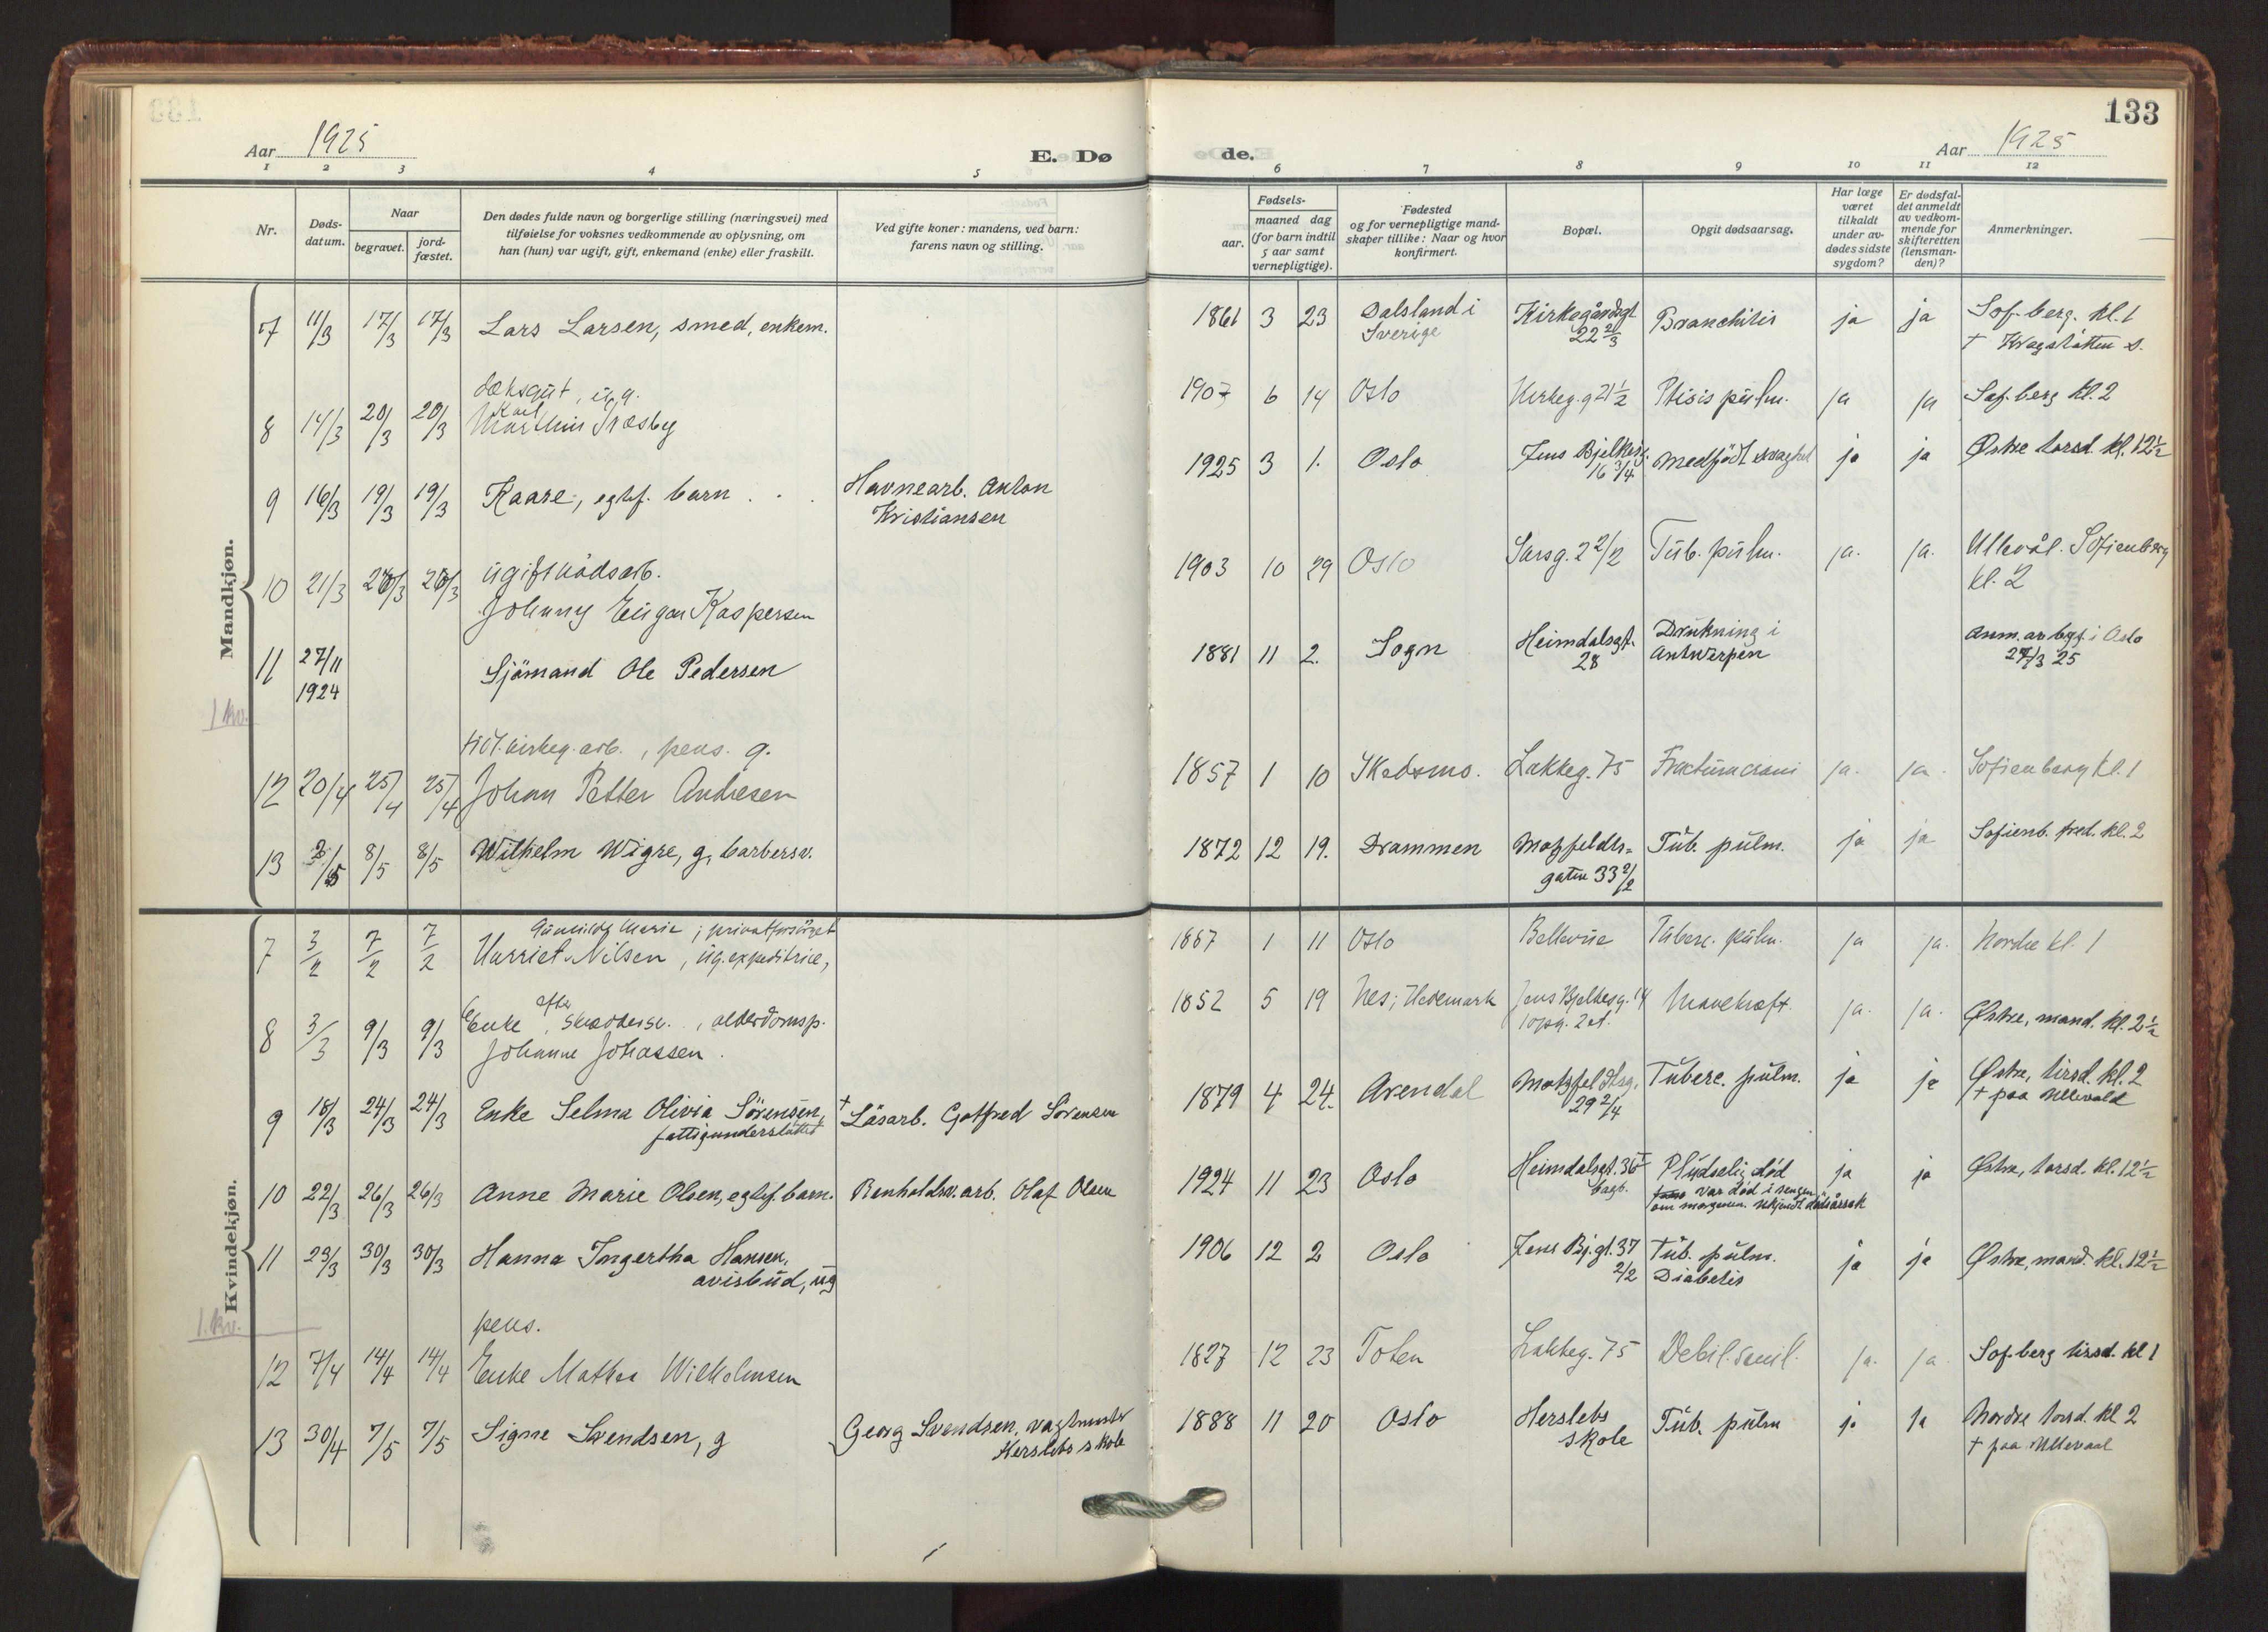 133
Aar 1925
E. Dø
de.
Aar 1925
1 2 3 4 5
6 7 8 9 10 11 12
Nr.
Døds-
datum.
Naar
begravet.
jord-
fæstet.
Den dødes fulde navn og borgerlige stilling (næringsvei) med
tilføielse for voksnes vedkommende av oplysning, om
han (hun) var ugift, gift, enkemand (enke) eller fraskilt.
Ved gifte koner: mandens, ved barn:
farens navn og stilling.
Fødsels-
aar.
maaned dag
(for barn indtil
5 aar samt
vernepligtige).
Fødested
og for vernepligtige mand-
skaper tillike: Naar og hvor
konfirmert.
Bopæl.
Opgit dødsaarsag.
Har læge
været
tilkaldt
under av-
dødes sidste
sygdom?
Er dødsfal-
det anmeldt
av vedkom-
mende for
skifteretten
(lensman-
den)?
Anmerkninger.
Mandkjøn.
7 11/3 17/3 17/3 Lars Larsen, smed, enkem. 1861 3 23 Dalsland i Sverige Kirkegårdsgt 22 2/3 Branchitis ja ja Sof. berg. kl. 1
8 14/3 20/3 20/3 dæksgut, ug. Karl Marthin Træsby 1907 6 14 Oslo Kirkeg. g 21 1/2 Ptisis pulm. ja ja Sof. berg kl. 2
9 16/3 19/3 19/3 Kaare, egtef. barn Havnearb. Anton Kristiansen 1925 3 1. Oslo Jens Bjelkesg. 16 3/4 medfödt svaghet ja ja Østre torsd. kl. 12 1/2
10 21/3 26/3 26/3 ugift Johnny Kaspersen 1903 10 29 Oslo Sarsg. 2 2/2 Tub. pulm. ja. ja. Ullevål. Sofienberg kl. 2
11 27/11 1924 Sjömand Ole Pedersen 1881 11 2. Sogn Heimdalsgt. 28 Drukning i Antwerpen Anm. av bgf. i Oslo 27/3 25
1 kv.
12 20/4 25/4 25/4 kirkeg. arb., pens. g. Johan Petter Andresen 1857 1 10 Skedsmo. Lakkeg. 75 Fractura crani ja. ja. Sofienberg kl. 1
13 2/5 8/5 8/5 Wilhelm Wigre, g, barbersv. 1872 12 19. Drammen Motzfeldts- gaten 33 2/2 Tub. pulm. ja ja Sofienb. fred. kl. 2
Kvindekjøn.
7 3/2 7/2 7/2 Gunhilda Marie; privatforsörget Harriet Nilsen, ug. expeditrice, 1867 1 11 Oslo Bellevue Tuberc. pulm. ja ja. Nordre kl. 1
8 3/3 9/3 9/3 Enke efter skrædersv., alderdomsp. Johanne Johassen. 1852 5 19 Nes, Hedemark Jens Bjelkesg. 14 opg. 2 et. Mavekræft ja. ja. Østre, mand. kl. 2 1/2
9 18/3 24/3 24/3 Enke Selma Olivia Sörensen, fattigunderstöttet † Läsarb. Gotfred Sörensen 1879 4 24. Arendal Motzfeldtsg. 29 2/4 Tuberc. pulm. ja ja Østre, tirsd. kl. 2 † paa Ullevold
10 22/3 26/3 26/3 Anne Marie Olsen, egtef. barn. Renholdsv. arb. Olaf Olsen 1924 11 23 Oslo Heimdalsgt. 36 bagb. Pludselig död var död i sengen om morgenen. Ukjendt dødsårsak ja ja Østre, torsd. kl. 12 1/2
11 23/3 30/3 30/3 Hanna Ingertha Hansen, avisbud, ug 1906 12 2 Oslo Jens Bj. gt. 37 2/2 Tub. pulm. Diabetis ja ja Østre, mand. kl. 12 1/2
1. kv.
12 7/4 14/4 14/4 pens. Enke Mathea Wilhelmsen 1827 12 23 Toten Lakkeg. 75 Debil. senil. ja. ja. Sof. berg tirsd. kl 1
13 30/4 7/5 7/5 Signe Svendsen, g Georg Svendsen, vagtmester Herslebs skole 1888 11 20 Oslo Herslebs skole Tub. pulm ja ja Nordre torsd. kl 2 † paa Ullevaal